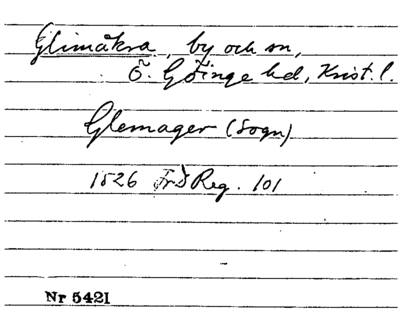 Glimåkra, by och sn,
Ö. Göinge hd, Krist. l.
Glemager (Sogn)
1526 FrIReg. 101
Nr 5421